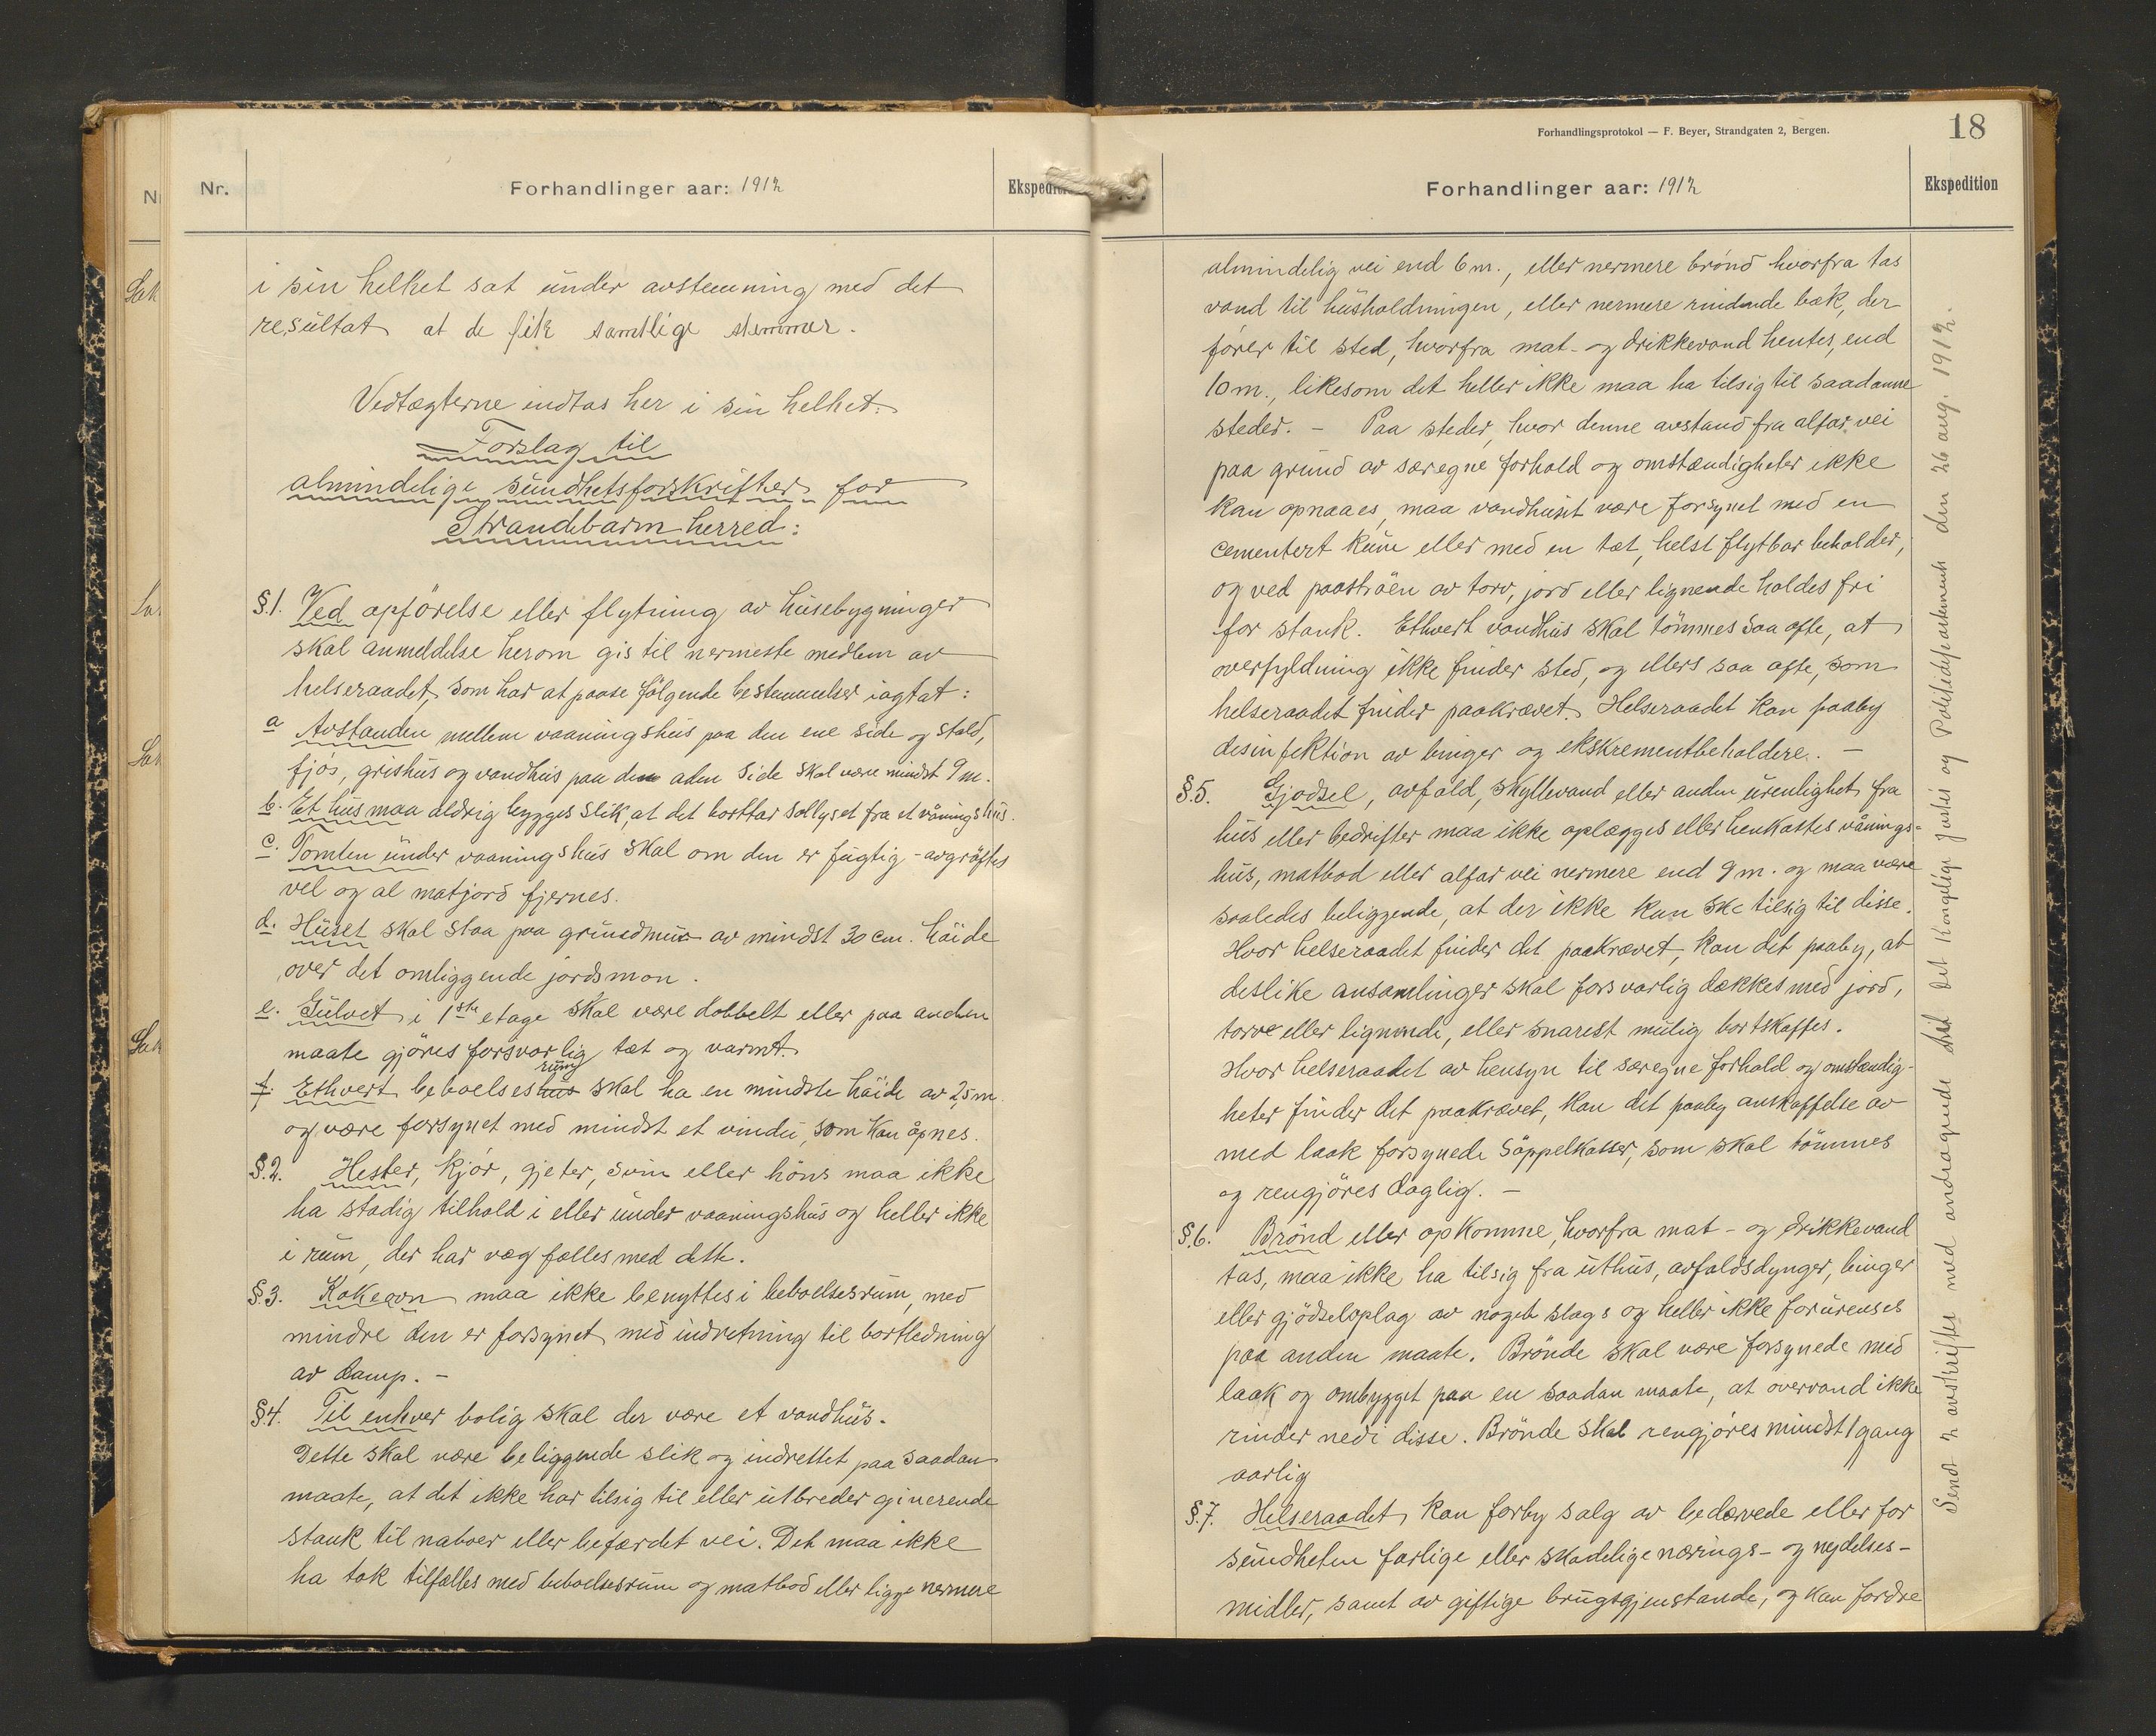 Nr.
Forhandlinger aar: 1912
Ekspedition
i sin helhet sat under avstemning med det
resultat at de fik samtlige stemmer.
Vedtægterne indtas her i sin helhet:
Forslag til
almindelige sundhetsforskrifter for
Strandebarm herred:
§.1. Ved opförelse eller flytning av husebygninger
skal anmeldelse herom gis til nermeste medlem av
helseraadet, som har at paase fölgende bestemmelser iagtat:
a Avstanden mellem vaaningshus paa den ene side og stald,
fjös, grishus og vandhus paa den aden side skal være mindst 9 m.
b. Et hus maa aldrig bygges slik, at det borttar sollyset fra et våningshus.
c. Tomten under vaaningshus skal om den er fugtig - avgröftes
vel og al matjord fjernes.
d. Huset skal staa paa grundmur av mindst 30 cm. höide
over det omliggende jordsmon.
e. Gulvet i 1ste etage skal være dobbelt eller paa anden
maate gjöres forsvorlig tæt og varmt.
rum
f. Ethvert beboelseshus skal ha en mindste höide av 2,5 m
og være forsynet med mindst et vindu, som kan åpnes.
§.2. Hester, kjör, gjeter, svin eller höns maa ikke
ha stadig tilhold i eller under vaaningshus og heller ikke
i rum, der har væg fælles med dette.
§.3. Kokeovn maa ikke benyttes i beboelsesrum, med
mindre den er forsynet med indretning til bortledning
av damp. -
§4. Til enhver bolig skal der være et vandhus.
Dette skal være beliggende slik og indrettet paa saadan
maate, at det ikke har tilsig til eller utbreder ginerende
stank til naboer eller befærdet vei. Det maa ikke
ha tak tilfælles med beboelsesrum og matbod eller ligge nermere
Forhandlingsprotokol — F. Beyer, Strandgaten 2, Bergen.
18
Forhandlinger aar: 1912
Ekspedition
almindelig vei end 6 m., eller nermere brönd hvorfra tas
vand til husholdningen, eller nermere rindende bæk, der
förer til sted, hvorfra mat- og drikkevand hentes, end
10 m., likesom det heller ikke maa ha tilsig til saadanne
steder. - Paa steder, hvor denne avstand fra alfar vei
paa grund av særegne forhold og omstændigheter ikke
kan opnaaes, maa vandhuset være forsynet med en
cementert kum eller med en tæt, helst flytbar beholder,
og ved paaströen av torv, jord eller lignende holdes fri
for stank. Ethvert vandhus skal tömmes saa ofte, at
overfyldning ikke finder sted, og ellers saa ofte, som
helseraadet finder paakrævet. Helseraadet kan paaby
desinfektion av binger og ekskrementbeholdere. -
§.5. Gjodsel, avfald, skyllevand eller anden urenlighet fra
hus eller bedrifter maa ikke oplægges eller henkastes vånings=
hus, matbod eller alfar vei nermere end 9 m. og maa være
saaledes beliggende, at der ikke kan ske tilsig til disse.
Hvor helseraadet finder det paakrævet, kan det paaby, at
deslike ansamlinger skal forsvarlig dækkes med jord,
torve eller lignende, eller snarest mulig bortskaffes.
Hvor helseraadet av hensyn til særegne forhold og omstændig-
heter finder det paakrævet, kan det paaby anskaffelse av
med laak forsynede söppelkasser, som skal tömmes
og rengjöres daglig. -
§.6. Brönd eller opkomme, hvorfra mat- og drikkevand
tas, maa ikke ha tilsig fra uthus, avfaldsdynger, binger
eller gjödselsoplag av noget slags og heller ikke forurenses
paa anden maate. Brönde skal være forsynede med
laak og ombygget paa en saadan maate, at overvand ikke
rinder ned i disse. Brönde skal rengjöres mindst 1 gang
aarlig
§.7. Helseraadet kan forby salg av bedærvede eller for
sundheten farlige eller skadelige nærings- og nydelses-
midler, samt av giftige brugsgjenstande, og kan fordre
Sendt 2 avskrifter med andragende til det Kongelige Justis og Politidepartement den 26 aug. 1912.
Sak
Sak
Sak